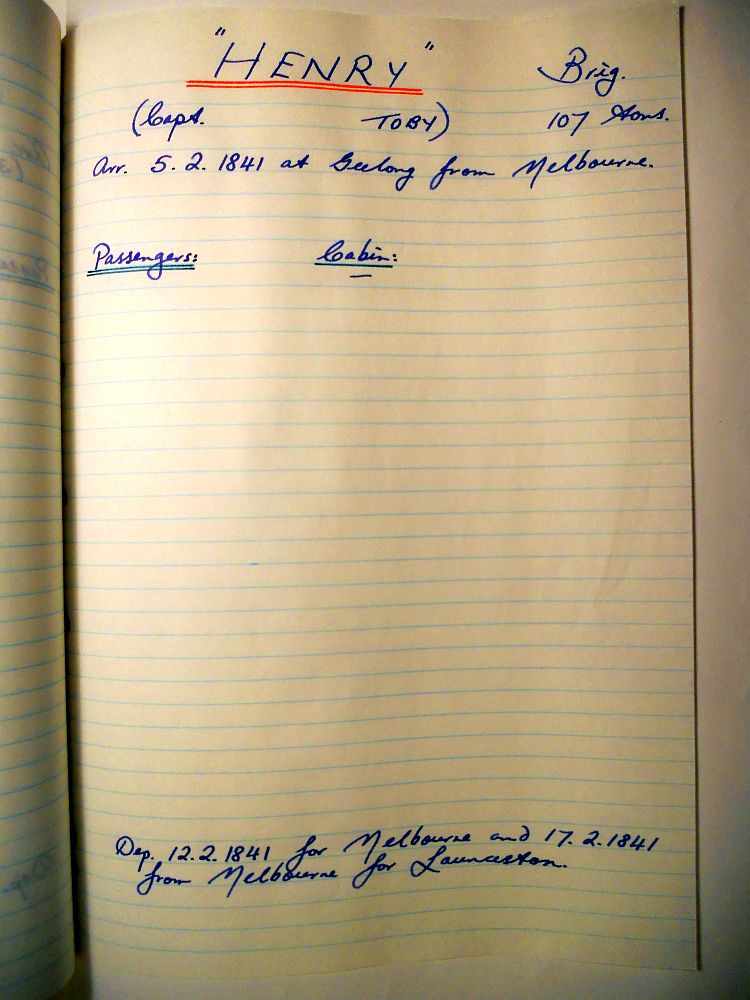 "HENRY" Brig.
(Capt. TOBY) 107 tons.
Arr. 5.2.1841 at Geelong from Melbourne.
Passengers: Cabin:
—
Dep. 12.2.1841 for Melbourne and 17.2.1841
from Melbourne for Launceston.